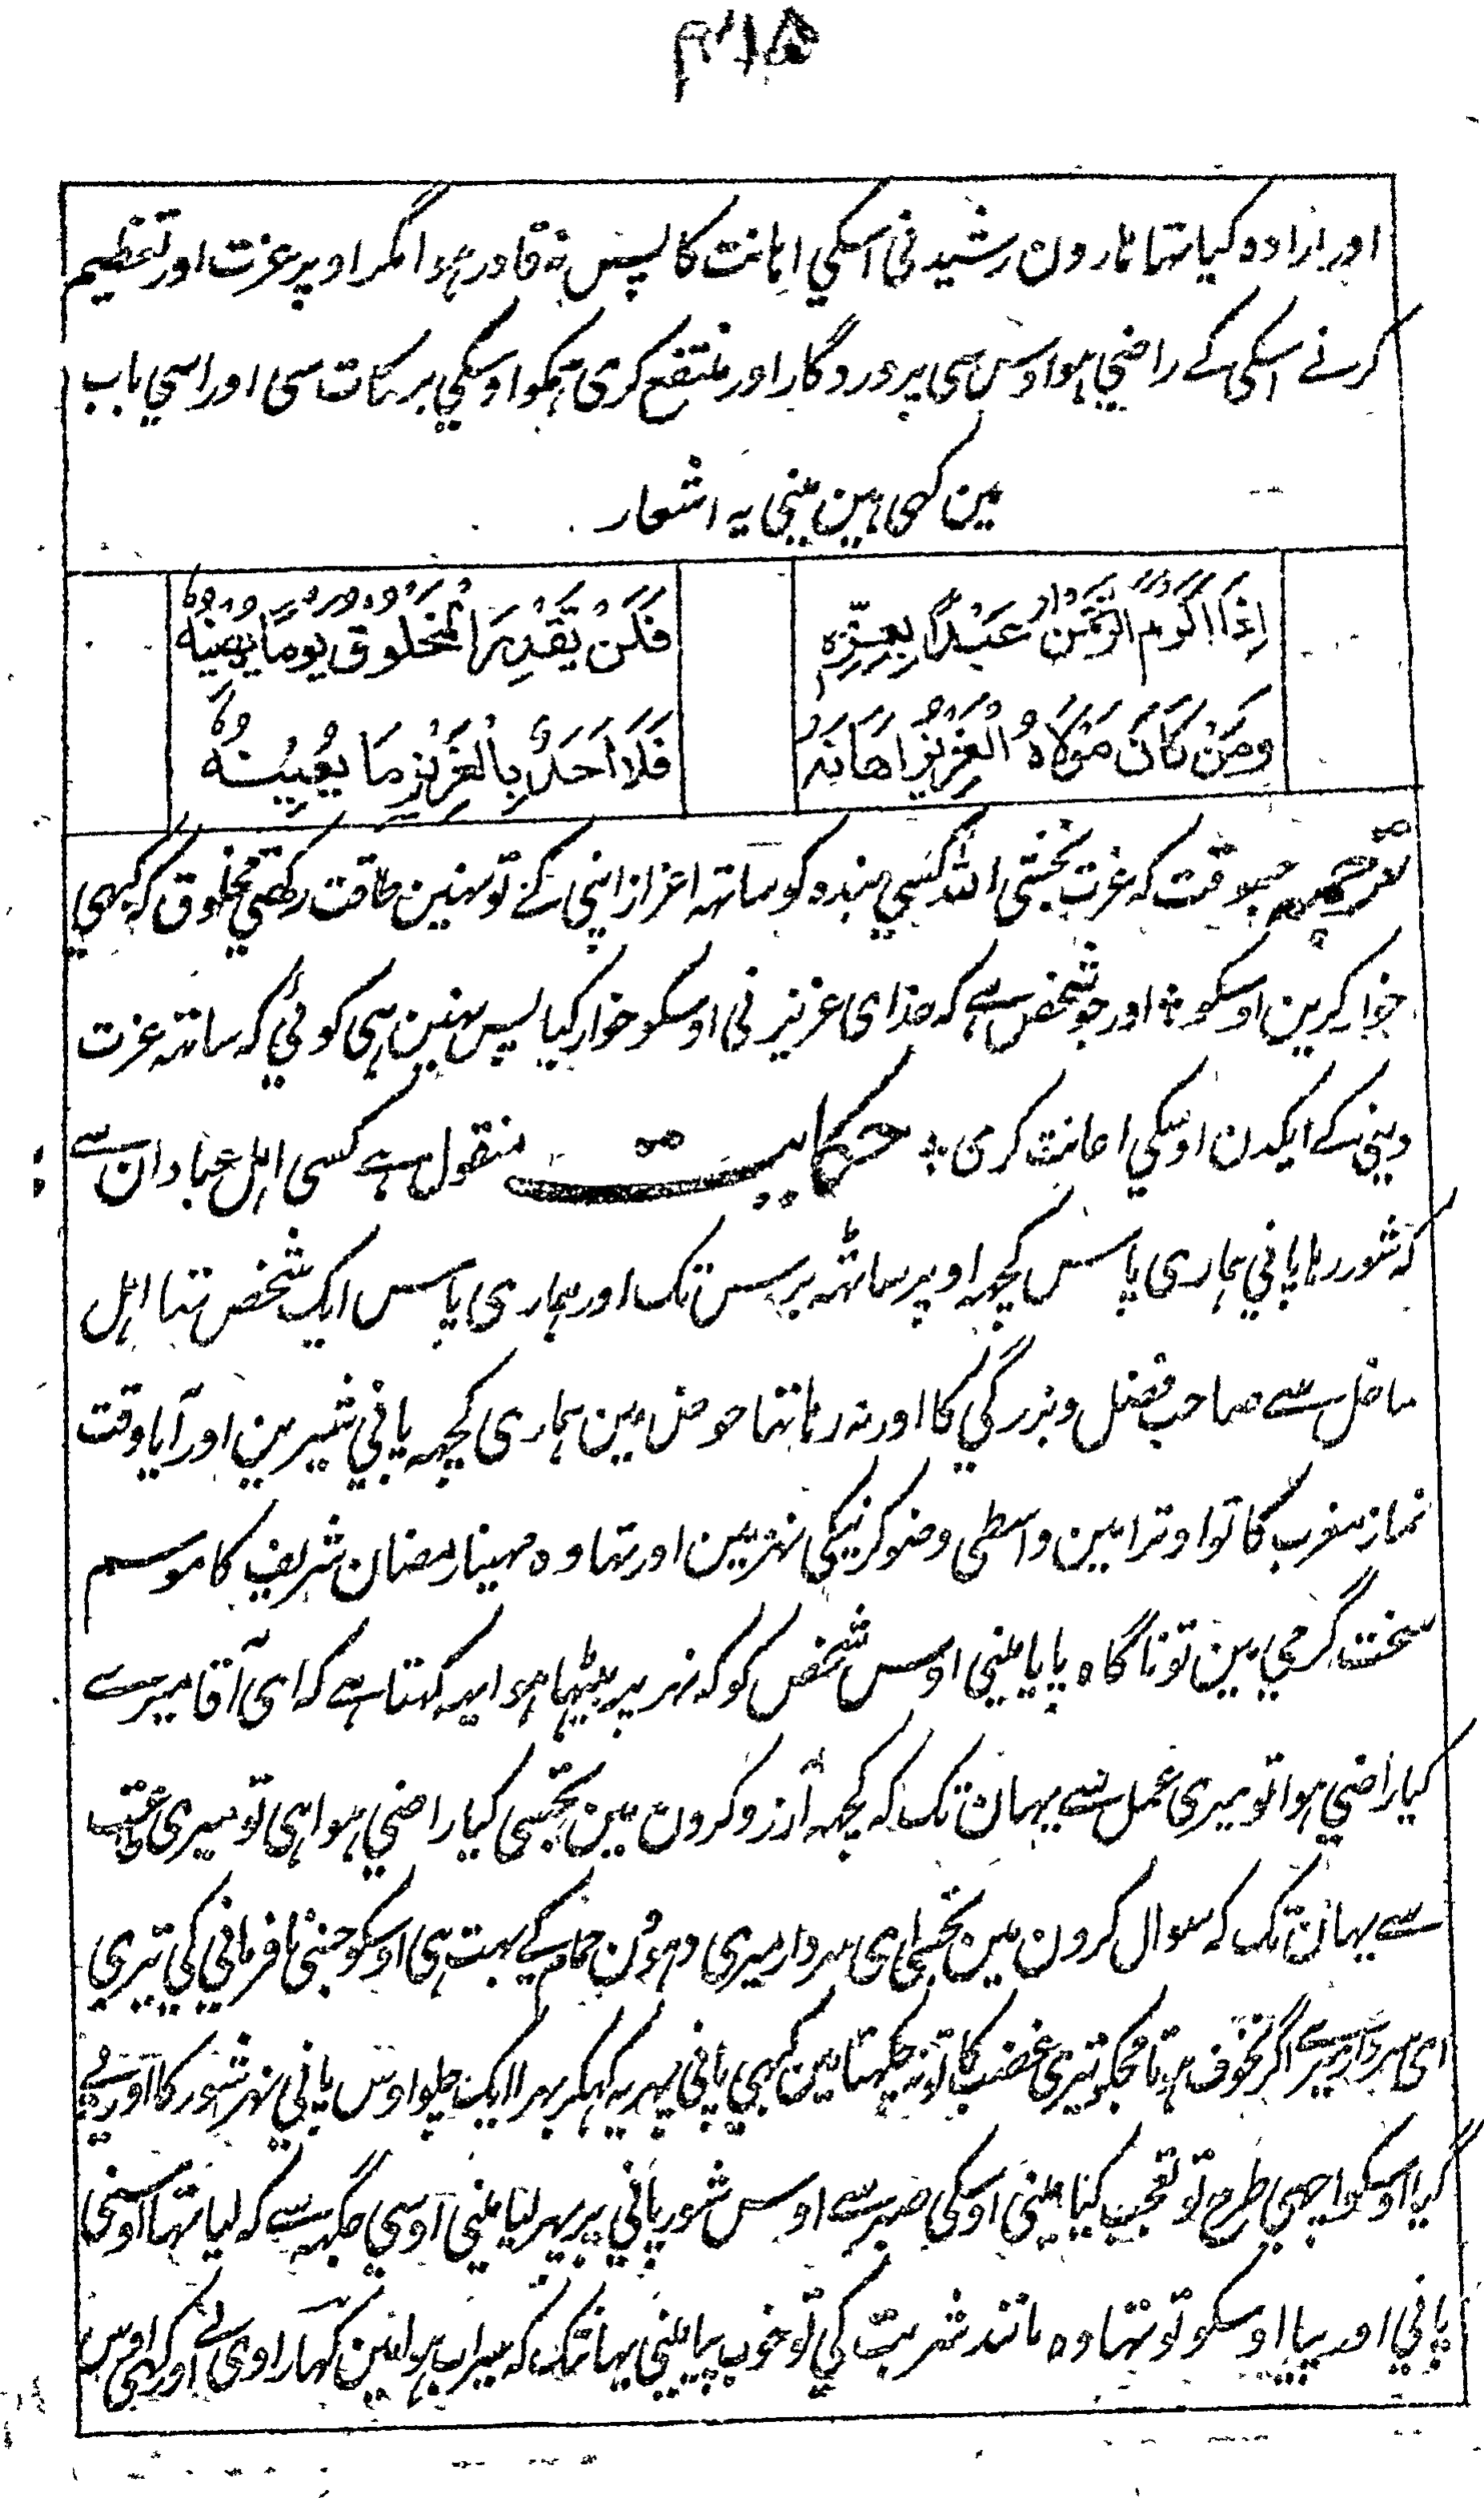 ۴۱۵
اور ارادہ کیا تہا ہارون رشید نی اسکي اہانت کا پس نہ قادر ہوا مگر اوپر عزت اور تعظیم
کرنے اسکی کے راضي ہوا وس سی پروردگار اور منتفع کری ہمکو اوسکي برکات سی اور اسي باب
مین کہی ہین مینی یہ اشعار
اِذَا اَكْرَمَ الرَّحْمٰنُ عَبْدًا بِعِزِّهٖ
فَلَنْ يَقْدِرَ الْمَخْلُوْقُ يَوْمًا يُهِيْنُهٗ
وَمَنْ كَانَ مَوْلَاهُ الْعَزِيْزُ اَهَانَهٗ
فَلَا اَحَدٌ بِالْعَزِيْزِ مَا يُعِيْنُهٗ
ترجمہ جسوقت کہ عزت بخشی اللہ کسي بندہ کو ساتہہ اعزاز اپنی کے تو نہین طاقت رکہتي مخلوق کہ کبہی
خوار کرین اوسکو ÷ اور جو شخص ہے کہ خدای عزیز نی اوسکو خوار کیا پس نہین ہی کوئي کہ ساتہہ عزت
دینی کے ایکدن اوسکي اعانت کری ÷ حکایت منقول ہے کسی اہل عبادان سے
کہ شور رہا پانی ہماری پاس کچہہ اوپر ساٹہہ برس تک اور ہماری پاس ایک شخص تہا اہل
ساحل سے صاحب فضل و بزرگي کا اور نہ رہا تہا حوض مین ہماری کچہہ پانی شیرین اور آیا وقت
نماز مغرب کا تو اوترا مین واسطی وضو کرنیکی نہر مین اور تہا وہ مہینا رمضان شریف کا موسم
سخت گرمي مین تو ناگاہ پایا مینی اوس شخص کو کہ نہر پر بیٹہا ہوا یہہ کہتا ہے کہ ای آقا میرے
کیا راضي ہوا تو میری عمل سے یہان تک کہ کچہہ آرزو کرون مین تجہسی کیا راضي ہوا ہی تو میری
سے یہان تک کہ سوال کرون مین تجہسی ای سردار میری دہوئن حمام کے بہت ہی اوسکو جسنی نافرمانی کی تیری
ای سردار میرے اگر نخوف ہوتا مجکو تیری غضب کا تو نہ چکہتا مین کبہي پانی پہر یہ کہکر بہرا ایک چلو اوس پانی نہر شور کا اور پی
گیا اوسکو اچہي طرح تو تعجب کیا مینی اوسکی صبر سے اوس شور پانی پر پہر لیا مینی اوسي جگہہ سے کہ لیا تہا اوسنی
پانی اور پیا اوسکو تو تہا وہ مانند شربت کي تو خوب پیا مینی یہانتک کہ سیراب ہوا مین کہا راوی نے اور کہی اوس